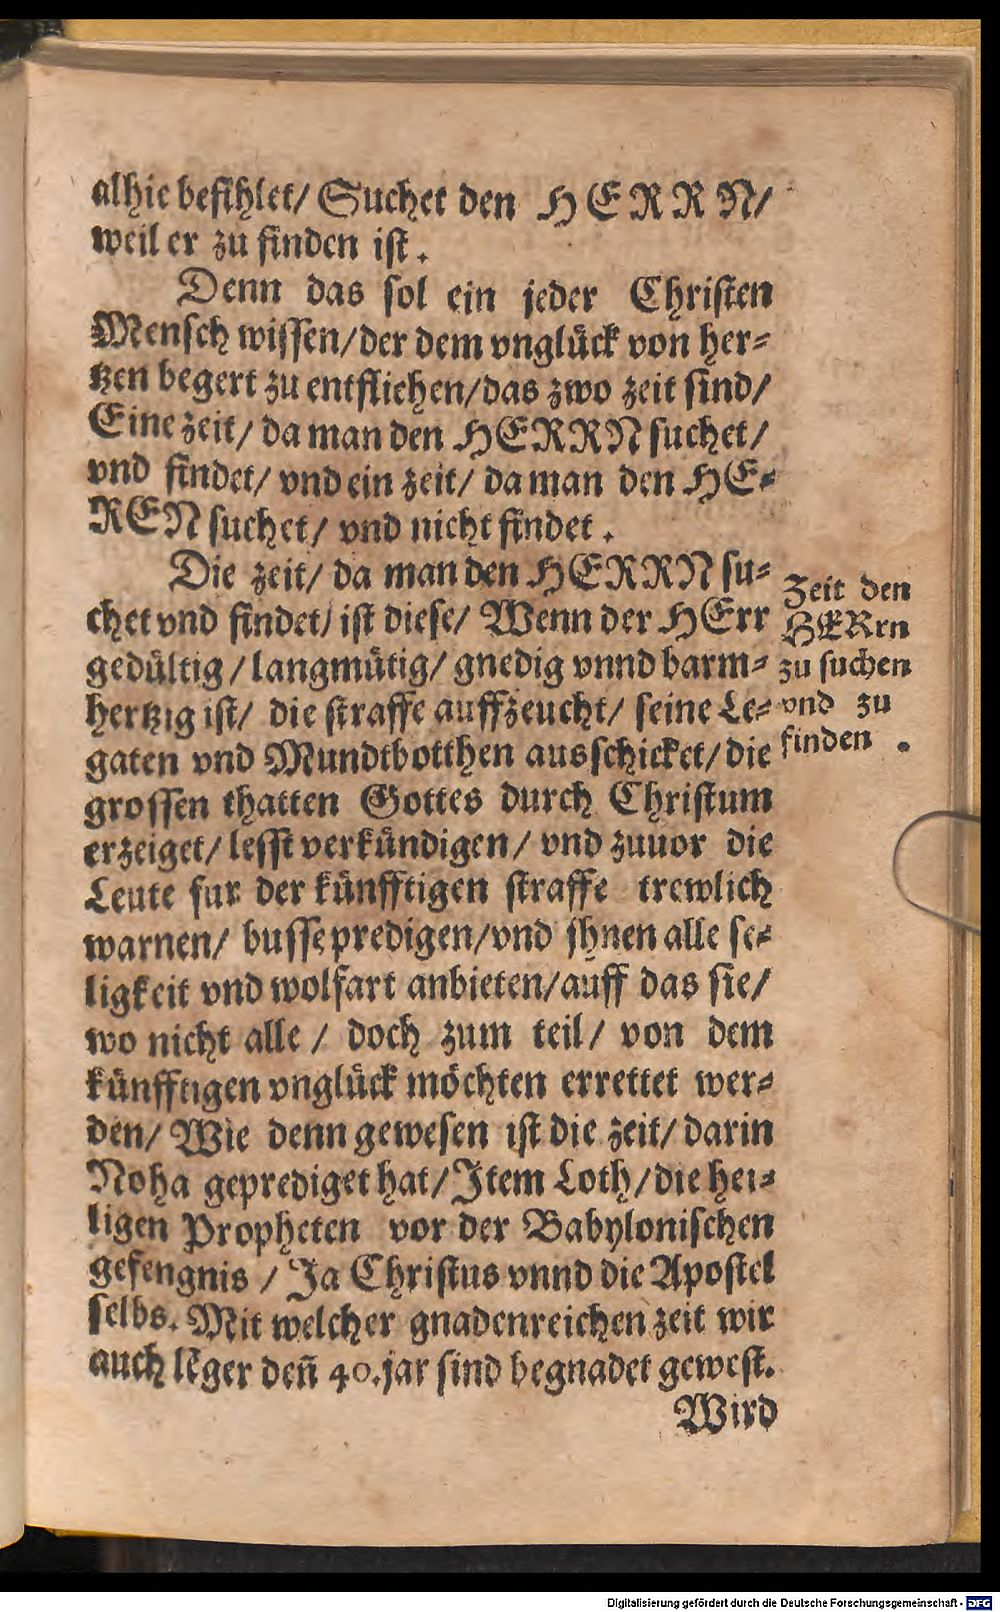 alhie befihlet/ Suchet den HERRN/
weil er zu finden ist.
Denn das sol ein jeder Christen
Mensch wissen/der dem vnglück von her⸗
tzen begert zu entfliehen/das zwo zeit sind/
Eine zeit/ da man den HERRN suchet/
vnd findet/ vnd ein zeit/ da man den HE⸗
REN suchet/ vnd nicht findet.
Die zeit/ da man den HERRN su⸗
chet vnd findet/ ist diese/ Wenn der HErr
gedültig/langmütig/ gnedig vnnd barm⸗
hertzig ist/ die straffe auffzeucht/ seine Le⸗
gaten vnd Mundtbotthen ausschicket/die
grossen thatten Gottes durch Christum
erzeiget/ lesst verkündigen/ vnd zuuor die
Leute fur der künfftigen straffe trewlich
warnen/ busse predigen/vnd jhnen alle se⸗
ligkeit vnd wolfart anbieten/auff das sie/
wo nicht alle/ doch zum teil/ von dem
künfftigen vnglück möchten errettet wer⸗
den/ Wie denn gewesen ist die zeit/ darin
Noha geprediget hat/ Item Loth/die hei⸗
ligen Propheten vor der Babylonischen
gefengnis/ Ja Christus vnnd die Apostel
selbs. Mit welcher gnadenreichen zeit wir
auch lēger deñ 40.jar sind begnadet gewest.
Wird
Zeit den
HERrn
zu suchen
vnd zu
finden.
Digitalisierung gefördert durch die Deutsche Forschungsgemeinschaft - DFG